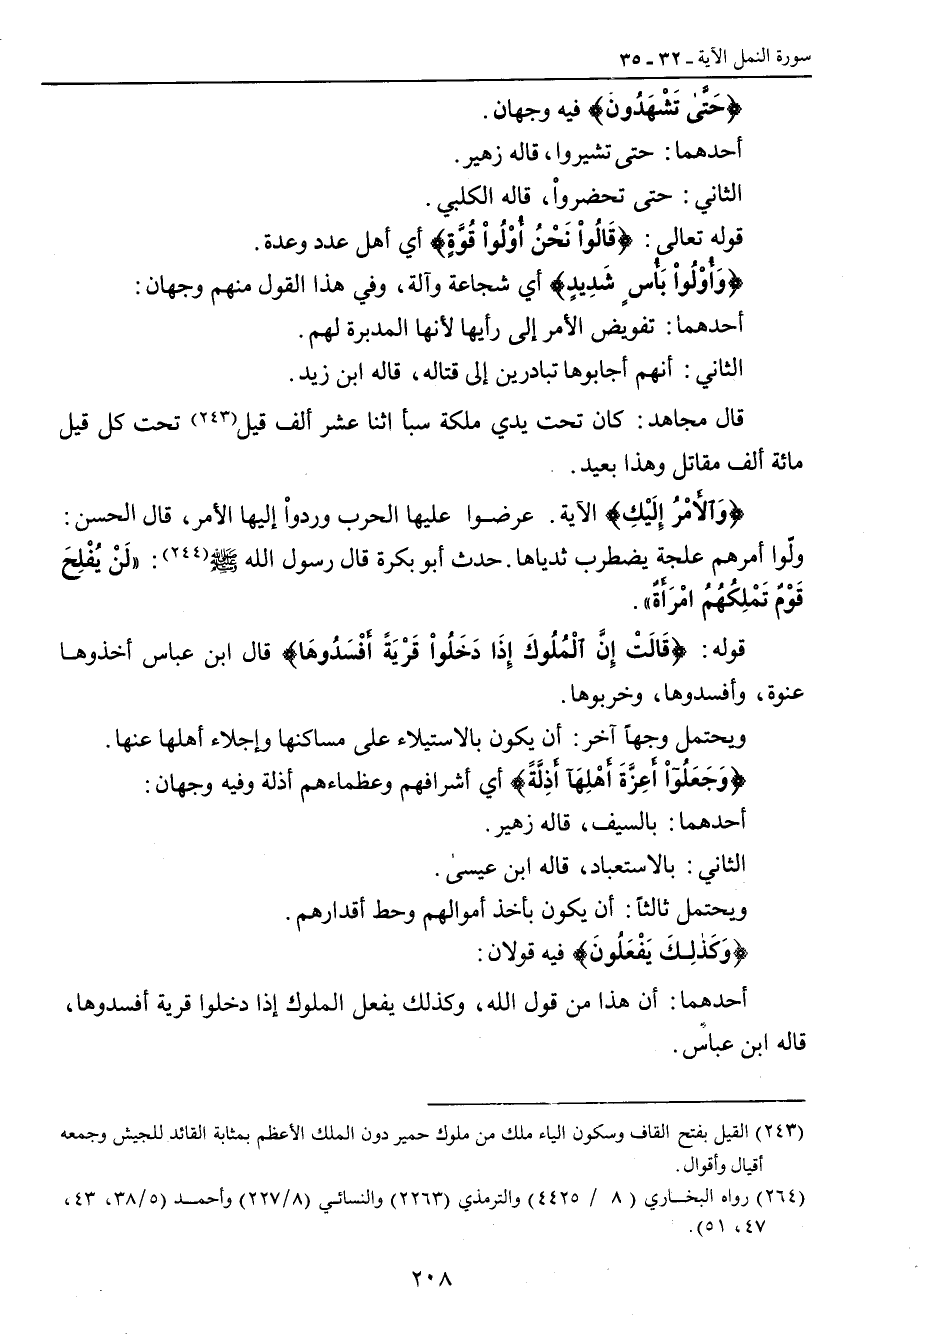 سورة النمل الآية ـ ٣٢ ـ ٣٥
﴿حَتَّىٰ تَشْهَدُونَ﴾ فيه وجهان.
أحدهما: حتى تشيروا، قاله زهير.
الثاني: حتى تحضرواْ، قاله الكلبي.
قوله تعالى: ﴿قَالُواْ نَحْنُ أُوْلُواْ قُوَّةٍ﴾ أي أهل عدد وعدة.
﴿وَأُوْلُواْ بَأْسٍ شَدِيدٍ﴾ أي شجاعة وآلة، وفي هذا القول منهم وجهان:
أحدهما: تفويض الأمر إلى رأيها لأنها المدبرة لهم.
الثاني: أنهم أجابوها تبادرين إلى قتاله، قاله ابن زيد.
قال مجاهد: كان تحت يدي ملكة سبأ اثنا عشر ألف قيل(٢٤٣) تحت كل قيل
مائة ألف مقاتل وهذا بعيد.
﴿وَٱلأَمْرُ إِلَيْكِ﴾ الآية. عرضوا عليها الحرب وردواْ إليها الأمر، قال الحسن:
ولّوا أمرهم علجة يضطرب ثدياها. حدث أبو بكرة قال رسول الله ﷺ(٢٤٤): «لَنْ يُفْلِحَ
قَوْمٌ تَمْلِكُهُمُ امْرَأَةٌ».
قوله: ﴿قَالَتْ إِنَّ ٱلْمُلُوكَ إِذَا دَخَلُواْ قَرْيَةً أَفْسَدُوهَا﴾ قال ابن عباس أخذوها
عنوة، وأفسدوها، وخربوها.
ويحتمل وجهاً آخر: أن يكون بالاستيلاء على مساكنها وإجلاء أهلها عنها.
﴿وَجَعَلُوٓاْ أَعِزَّةَ أَهْلِهَآ أَذِلَّةً﴾ أي أشرافهم وعظماءهم أذلة وفيه وجهان:
أحدهما: بالسيف، قاله زهير.
الثاني: بالاستعباد، قاله ابن عيسىٰ.
ويحتمل ثالثاً: أن يكون بأخذ أموالهم وحط أقدارهم.
﴿وَكَذَٰلِكَ يَفْعَلُونَ﴾ فيه قولان:
أحدهما: أن هذا من قول الله، وكذلك يفعل الملوك إذا دخلوا قرية أفسدوها،
قاله ابن عباس.
(٢٤٣) القيل بفتح القاف وسكون الياء ملك من ملوك حمير دون الملك الأعظم بمثابة القائد للجيش وجمعه
أقيال وأقوال.
(٢٦٤) رواه البخاري (٨ / ٤٤٢٥) والترمذي (٢٢٦٣) والنسائي (٢٢٧/٨) وأحمد (٣٨/٥، ٤٣،
٤٧، ٥١).
٢٠٨